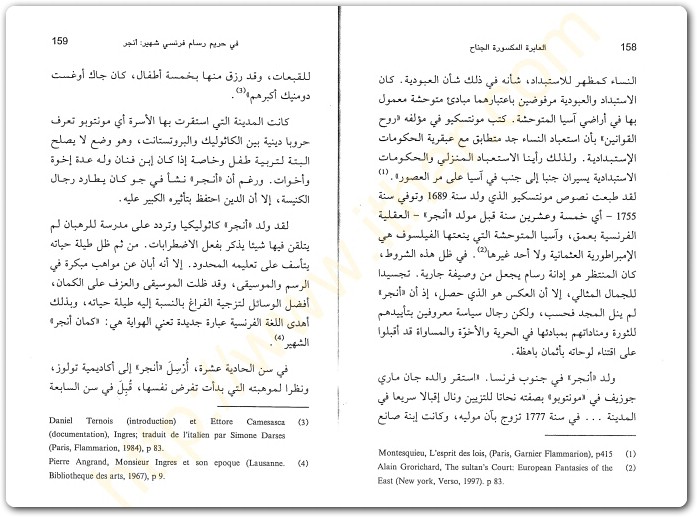 158 العابرة المكسورة الجناح
النساء كمظهر للاستبداد، شأنه في ذلك شأن العبودية. كان
الاستبداد والعبودية مرفوضين باعتبارهما مبادئ متوحشة معمول
بها في أراضي آسيا المتوحشة. كتب مونتسكيو في مؤلفه «روح
القوانين» بأن استعباد النساء جد متطابق مع عبقرية الحكومات
الإستبدادية. ولذلك رأينا الاستعباد المنزلي والحكومات
الاستبدادية يسيران جنبا إلى جنب في آسيا على مر العصور». (1)
لقد طبعت نصوص مونتسكيو الذي ولد سنة 1689 وتوفي سنة
1755 – أي خمسة وعشرين سنة قبل مولد «أنجر» – العقلية
الفرنسية بعمق، وآسيا المتوحشة التي ينعتها الفيلسوف هي
الإمبراطورية العثمانية ولا أحد غيرها(2). في ظل هذه الشروط،
كان المنتظر هو إدانة رسام يجعل من وصيفة جارية. تجسيدا
للجمال المثالي، إلا أن العكس هو الذي حصل، إذ أن «أنجر»
لم ينل المجد فحسب، ولكن رجال سياسة معروفين بتأييدهم
للثورة ومناداتهم بمبادئها في الحرية والأخوّة والمساواة قد أقبلوا
على اقتناء لوحاته بأثمان باهظة.
ولد «أنجر» في جنوب فرنسا. «استقر والده جان ماري
جوزيف في «مونتوبو» بصفته نحاتا للتزيين ونال إقبالا سريعا في
المدينة ... في سنة 1777 تزوج بآن موليه، وكانت إبنة صانع
(1) Montesquieu, L'esprit des lois, (Paris, Garnier Flammarion), p415
(2) Alain Grorichard, The sultan's Court: European Fantasies of the
East (New york, Verso, 1997). p 83.
في حريم رسام فرنسي شهير: أنجر 159
للقبعات، وقد رزق منها بخمسة أطفال، كان جاك أوغست
دومنيك أكبرهم»(3).
كانت المدينة التي استقرت بها الأسرة أي مونتوبو تعرف
حروبا دينية بين الكاثوليك والبروتستانت، وهو وضع لا يصلح
البتة لتربية طفل وخاصة إذا كان إبن فنان وله عدة إخوة
وأخوات. ورغم أن «أنجر» نشأ في جو كان يطارد رجال
الكنيسة، إلا أن الدين احتفظ بتأثيره الكبير عليه.
لقد ولد «أنجر» كاثوليكيا وتردد على مدرسة للرهبان لم
يتلقن فيها شيئا يذكر بفعل الاضطرابات. من ثم ظل طيلة حياته
يتأسف على تعليمه المحدود. إلا أنه أبان عن مواهب مبكرة في
الرسم والموسيقى، وقد ظلت الموسيقى والعزف على الكمان،
أفضل الوسائل لتزجية الفراغ بالنسبة إليه طيلة حياته، وبذلك
أهدى اللغة الفرنسية عبارة جديدة تعني الهواية هي: «كمان أنجر
الشهير(4).
في سن الحادية عشرة، أُرْسِلَ «أنجر» إلى أكاديمية تولوز،
ونظرا لموهبته التي بدأت تفرض نفسها، قُبِلَ في سن السابعة
(3) Daniel Ternois (introduction) et Ettore Camesasca
(documentation), Ingres; traduit de l'italien par Simone Darses
(Paris, Flammarion, 1984), p 83.
(4) Pierre Angrand, Monsieur Ingres et son epoque (Lausanne.
Bibliotheque des arts, 1967), p 9.